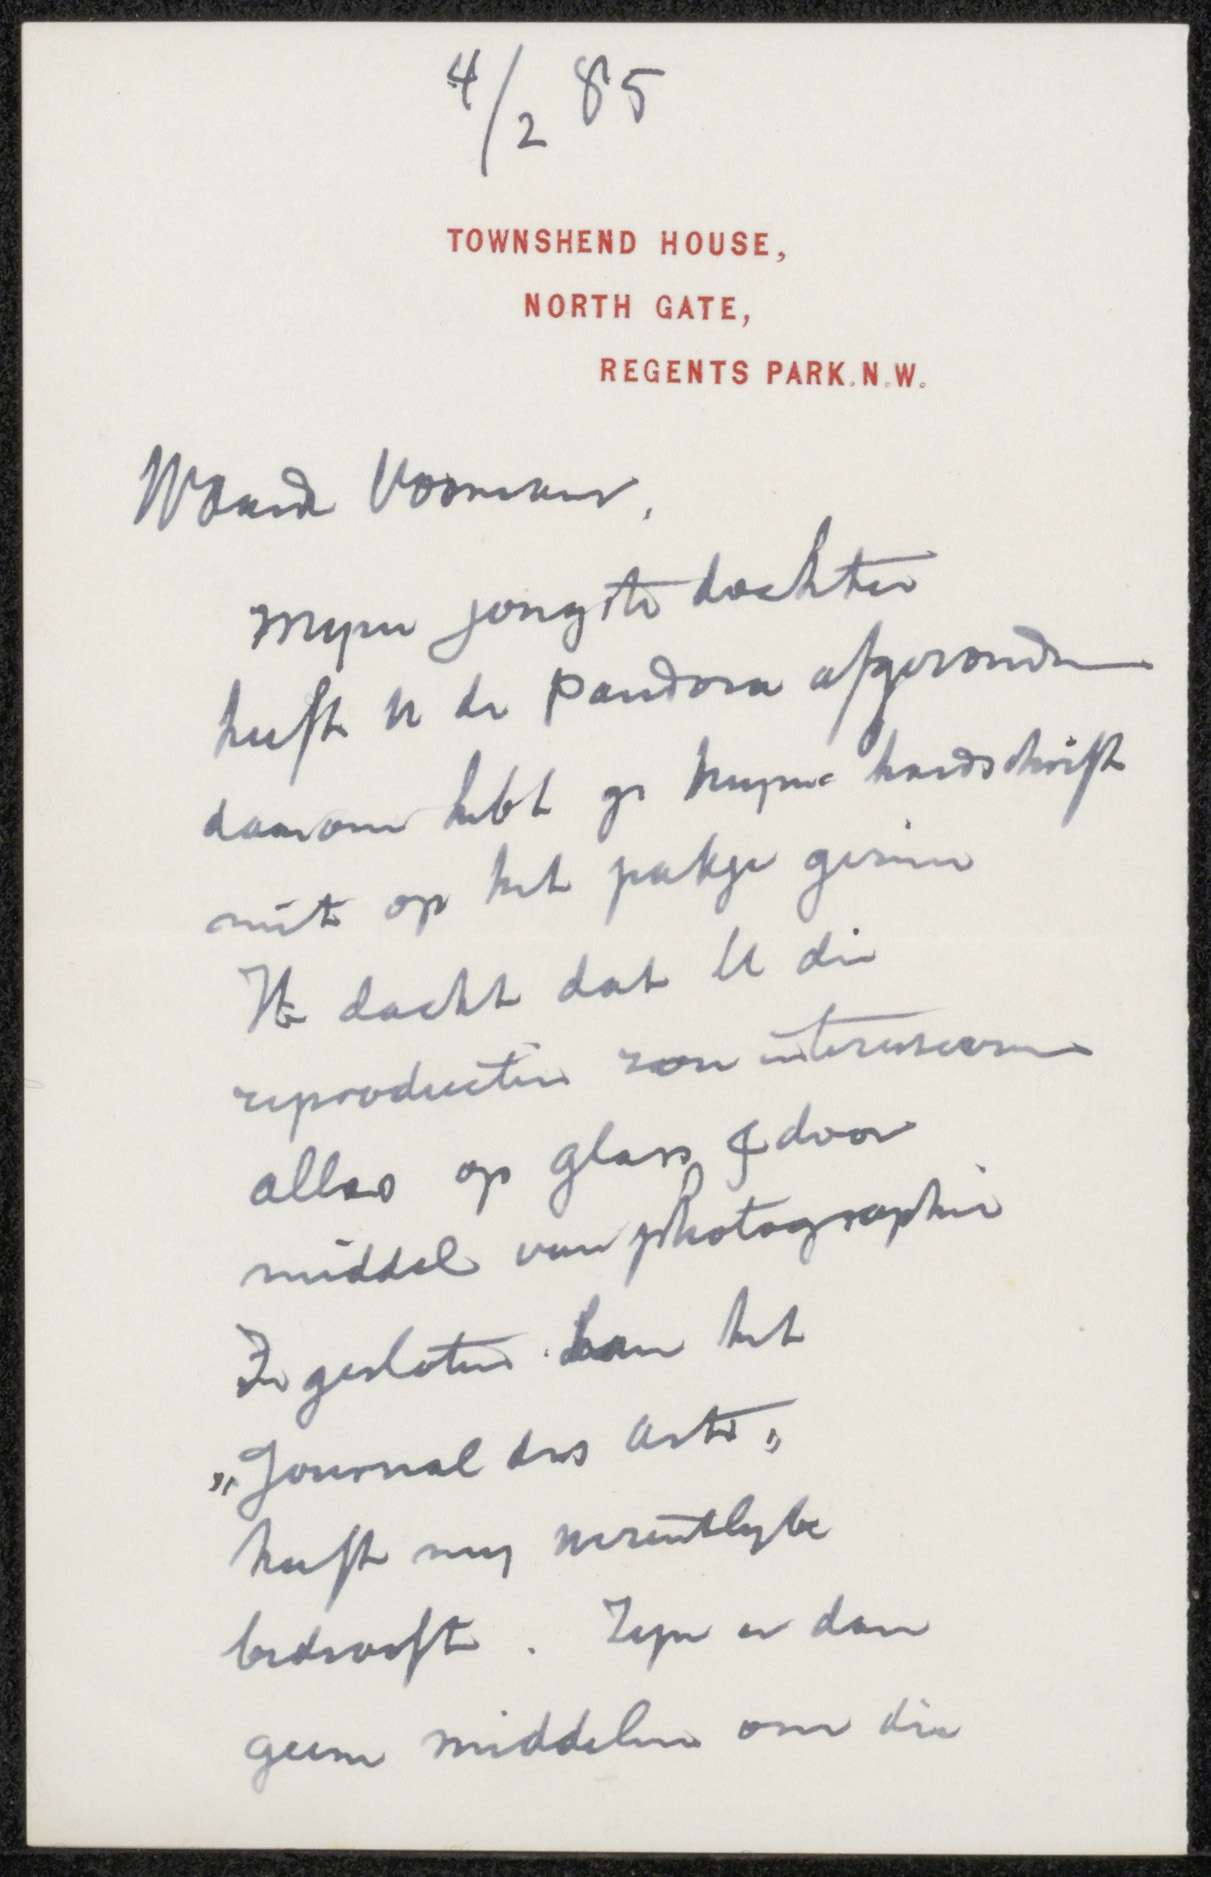 4/2 85
TOWNSHEND HOUSE,
NORTH GATE,
REGENTS PARK. N. W.
Waarde Vosmaer,
Myne jongste dochter
heeft U de Pandora afgezonden
daarom hebt ge myne handschrift
niet op het pakje gezien
Ik dacht dat U die
reproductie zou interesseeren
alles op glass & door
middel van photographie
Ingesloten van het
„Journal des Arts„
heeft my wezentlyke
bedroeft. Zyn er dan
geene middelen om die